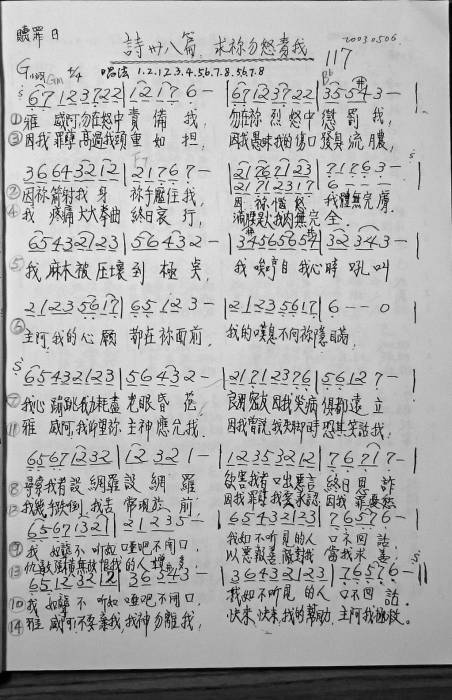 贖罪日
詩卅八篇. 求祢勿怒責我
20030506
117
G Gm 4/4 唱法 1.2.1.2.3.4.5.6.7.8.5.6.7.8
6 7 1 2 3 7 2 2 | 1 2 1 7 6 – | 6 7 1 2 3 7 2 2 | 3 5 5 4 3 – |
① 雅威阿勿在怒中責備我, 勿在祢烈怒中懲罰我,
③ 因我罪孽高過我頭重如担, 因我愚昧我的傷口發臭流膿,
3 6 6 4 3 2 1 2 | 2 1 7 6 7 – | 2 1 7 6 7 1 2 3 | 7 1 7 6 3 –
2 1 7 1 2 3 1 7 | 6 – – –
② 因祢箭射我身 祢手壓住我, 因祢惱怒 我體無完膚.
④ 我疼痛大大拳曲終日哀行, 滿腰是火我肉無完全.
6 5 4 3 2 1 2 3 | 5 6 4 3 2 – | 3 4 5 6 5 6 5 4 | 3 2 3 4 3 – |
⑤ 我麻木被压壞到極点 我唉哼自我心時吼叫
2 1 2 3 5 6 1 7 | 6 5 1 2 3 – | 2 1 2 3 5 6 1 7 | 6 – – 0 |
⑥ 主阿,我的心願都在祢面前, 我的嘆息不向祢隱瞞.
6 5 4 3 2 1 2 3 | 5 6 4 3 2 – | 2 1 7 1 2 3 7 6 | 5 6 1 2 7 – |
⑦ 我心蹦跳我力耗盡光眼昏花, 良朋密友因我災病俱都遠立
⑪ 雅威阿,我仰望祢主神應允我. 因我曾說,我失脚時恐其笑話我,
6 5 6 7 1 2 3 2 | 1 2 3 2 1 – | 1 2 3 5 3 2 1 2 | 7 6 7 1 7 – |
⑧ 尋索我者設網羅設網羅 欲害我者口出惡言終日思詐
⑫ 我幾乎跌倒,我苦常現於前, 因我罪孽我要承認因我罪憂愁
6 5 6 7 1 3 2 1 | 2 1 2 3 5 – | 6 5 4 3 2 1 2 3 | 7 6 5 7 6 – |
⑨ 我如聾不听如啞吧不開口, 我如不听見的人口不回話.
⑬ 以惡報善敵對我當我求善;
6 5 1 2 3 2 1 2 | 3 6 5 4 3 – | 3 6 4 3 2 1 2 3 | 7 6 5 7 6 – ||
⑩ 我如聾不听如啞吧不開口, 我如不听見的人口不回話.
⑭ 雅威阿,不要棄我,我神勿離我, 快來,快來,我的幫助,主阿我拯救.